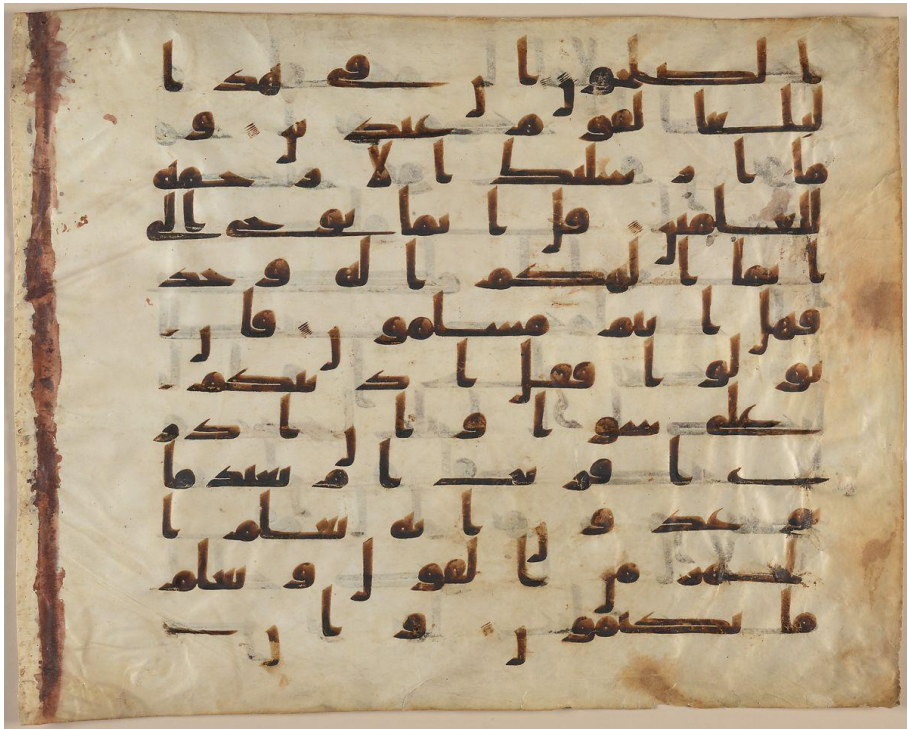 الصلحون ان فى هذا
لبلغا لقوم عبدين و
ما ارسلنك الا رحمه
للعلمين قل انما يوحى الى
انما الهكم اله وحد
فهل انتم مسلمون فان
تولوا فقل اذنتكم
على سوا وان ادر
ى اقريب ام بعيد ما
توعدون انه يعلم ا
لجهر من القول و يعلم
ما تكتمون وان